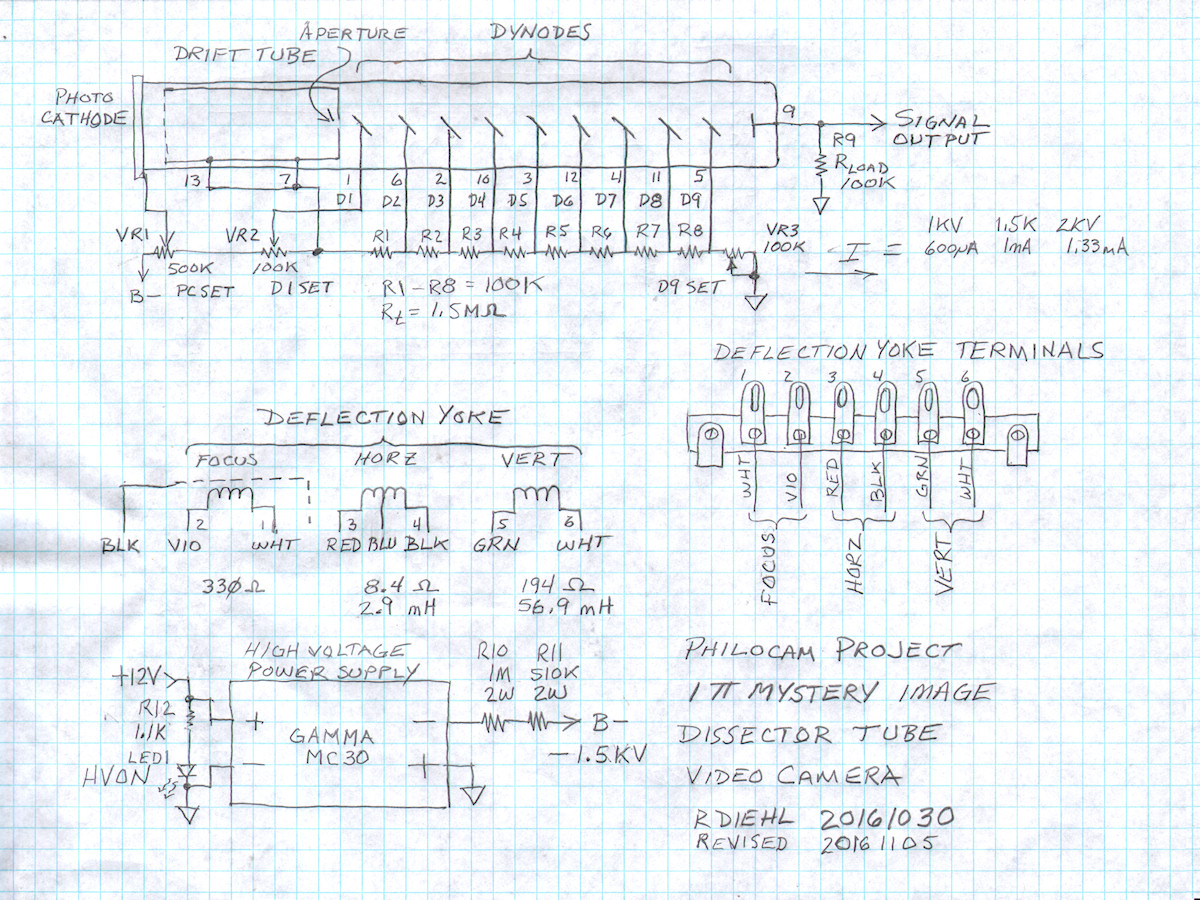 APERTURE
DYNODES
DRIFT TUBE
PHOTO
CATHODE
9
SIGNAL
OUTPUT
R9
RLOAD
100K
13 7 1 6 2 10 3 12 4 11 5
D1 D2 D3 D4 D5 D6 D7 D8 D9
VR1 VR2 R1 R2 R3 R4 R5 R6 R7 R8
VR3
100K
500K 100K
B- PC SET D1 SET
R1-R8 = 100K
Rt = 1.5MΩ
D9 SET
1KV 1.5K 2KV
I = 600µA 1mA 1.33mA
DEFLECTION YOKE TERMINALS
1 2 3 4 5 6
WHT VIO RED BLK GRN WHT
FOCUS HORZ VERT
DEFLECTION YOKE
FOCUS HORZ VERT
2 1 3 4 5 6
BLK VIO WHT RED BLU BLK GRN WHT
330Ω 8.4 Ω 194 Ω
2.9 mH 56.9 mH
HIGH VOLTAGE
POWER SUPPLY
+12V
R12
1.1K
LED1
HV ON
+ -
- +
GAMMA
MC30
R10 R11
1M 510K
2W 2W
B-
-1.5KV
PHILOCAM PROJECT
1 π MYSTERY IMAGE
DISSECTOR TUBE
VIDEO CAMERA
RDIEHL 20161030
REVISED 20161105